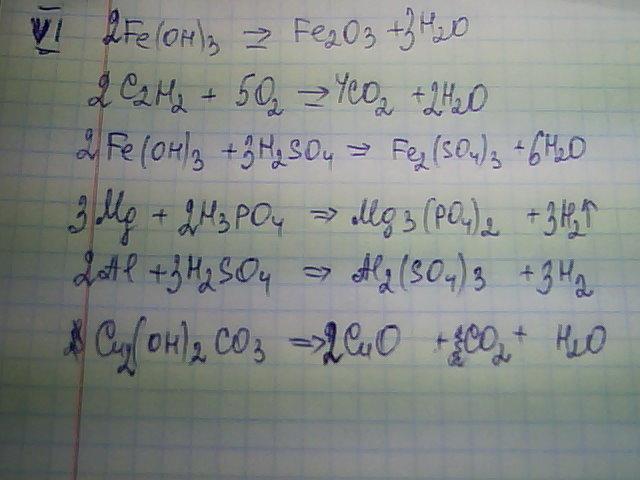 VI 2Fe(OH)3 => Fe2O3 + 3H2O
2C2H2 + 5O2 => 4CO2 + 2H2O
2Fe(OH)3 + 3H2SO4 => Fe2(SO4)3 + 6H2O
3Mg + 2H3PO4 => Mg3(PO4)2 + 3H2↑
2Al + 3H2SO4 => Al2(SO4)3 + 3H2
Cu2(OH)2CO3 => 2CuO + CO2 + H2O